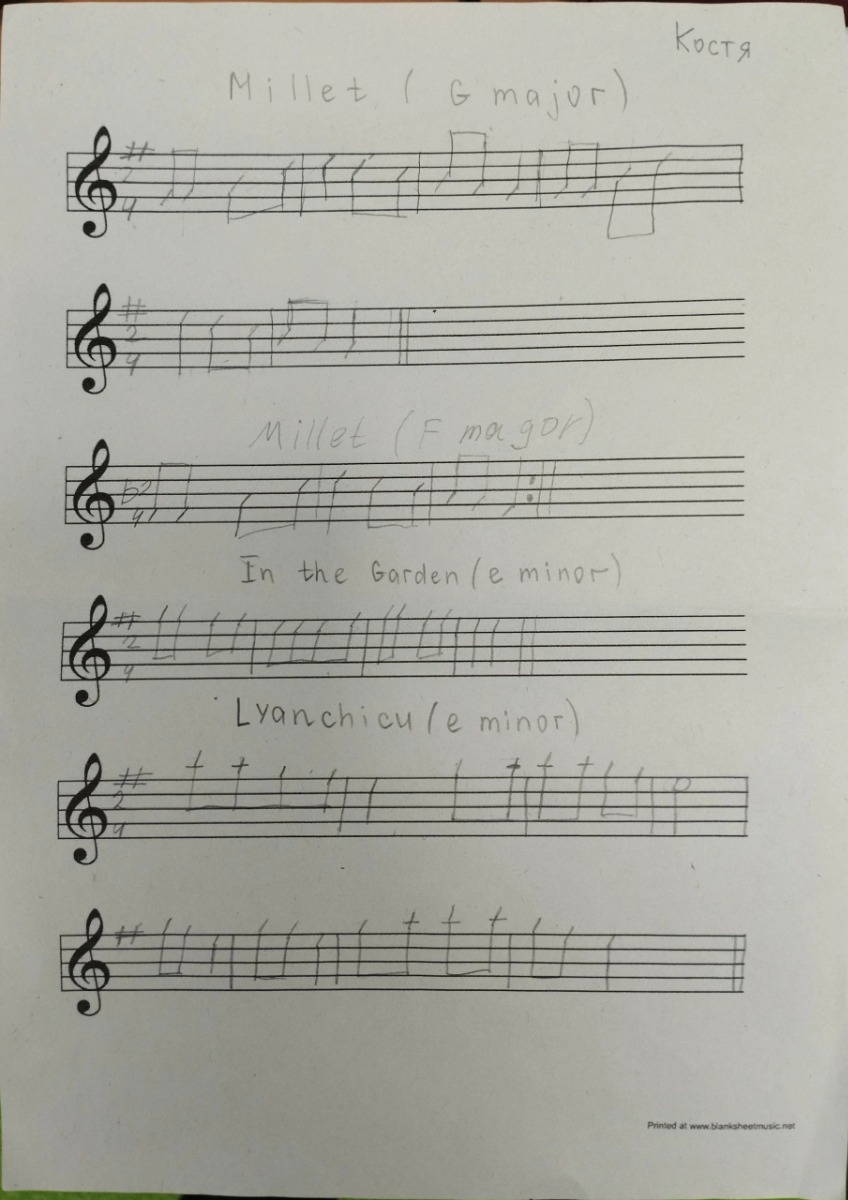 Костя
Millet ( G major)
2
4
2
4
Millet (F magor)
2
4
In the Garden (e minor)
2
4
Lyanchicu (e minor)
2
4
Printed at www.blanksheetmusic.net